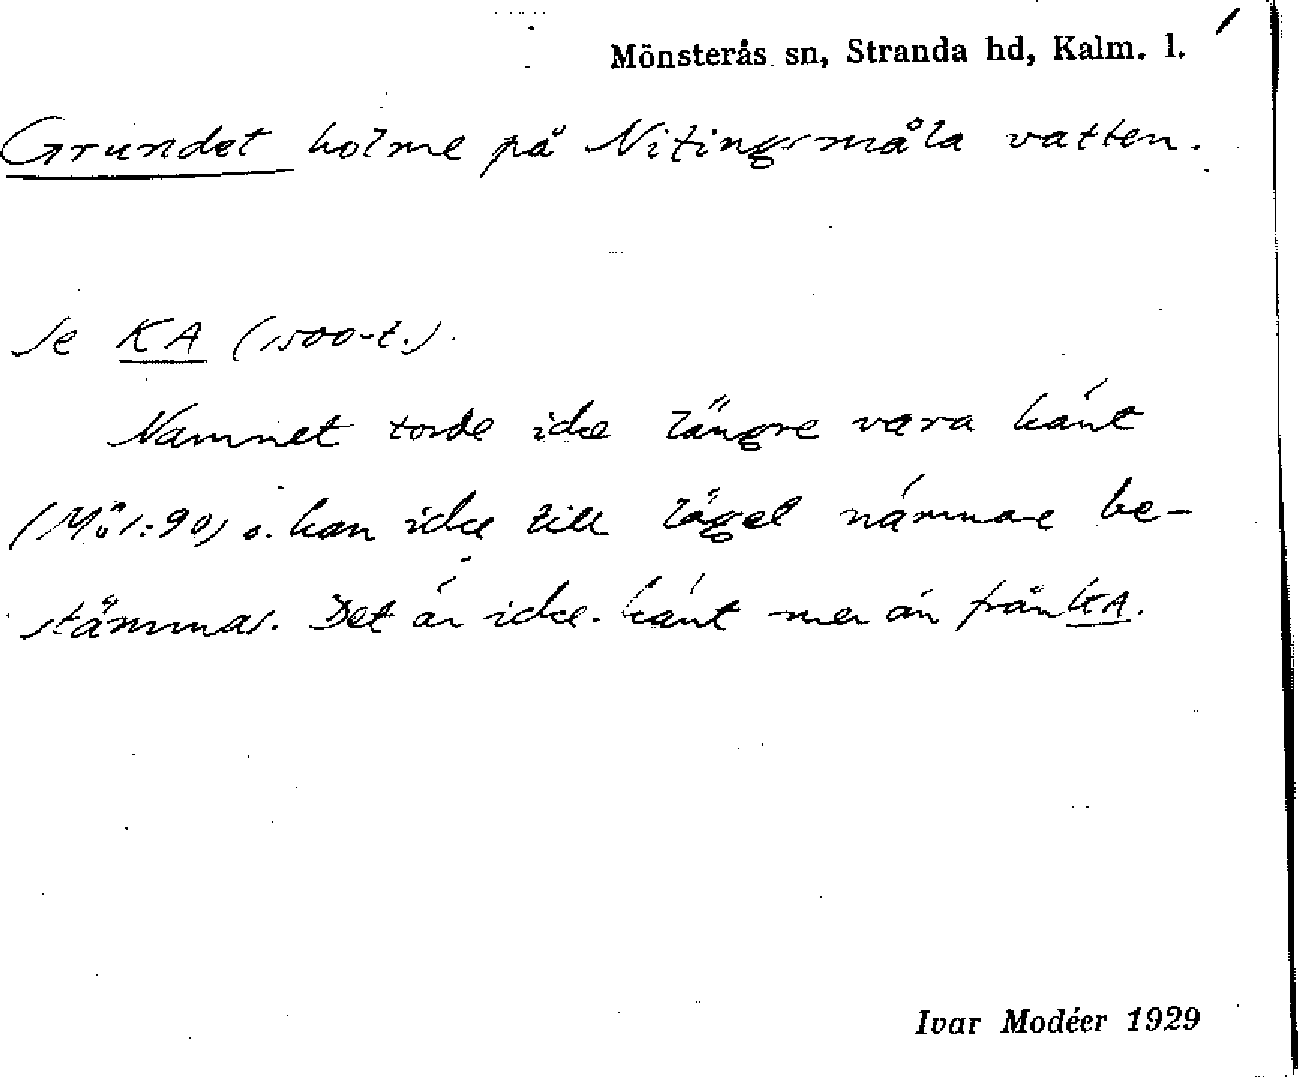 Mönsterås sn, Stranda hd, Kalm. l.
Grundet holme på Nitingsmåla vatten.
Se KA (1500-t.).
Namnet torde icke längre vara känt
o. kan icke till läget närmare be-
stämmas. Det är icke känt mer än från KA.
Ivar Modéer 1929